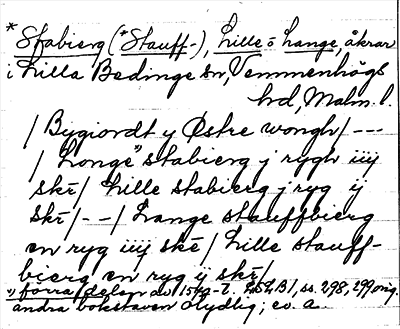 *Stabierg (*Stauff-), Lille o Lange, åkrar
i Lilla Bedinge sn, Vemmenhögs
hd, Malm. l.
/ Bygiordt y Østre wongh / ---
/ Longe" stabierg j rygh iiij
skē / Lille stabierg j ryg ij
skē / -- / Lange stauffbierg
en ryg iiij skē / Lille stauff-
bierg en ryg ij skē /
förra delen av 15 -t. LÄLB1, ss. 298, 299 orig.
andra bokstaven otydlig; ev. a.